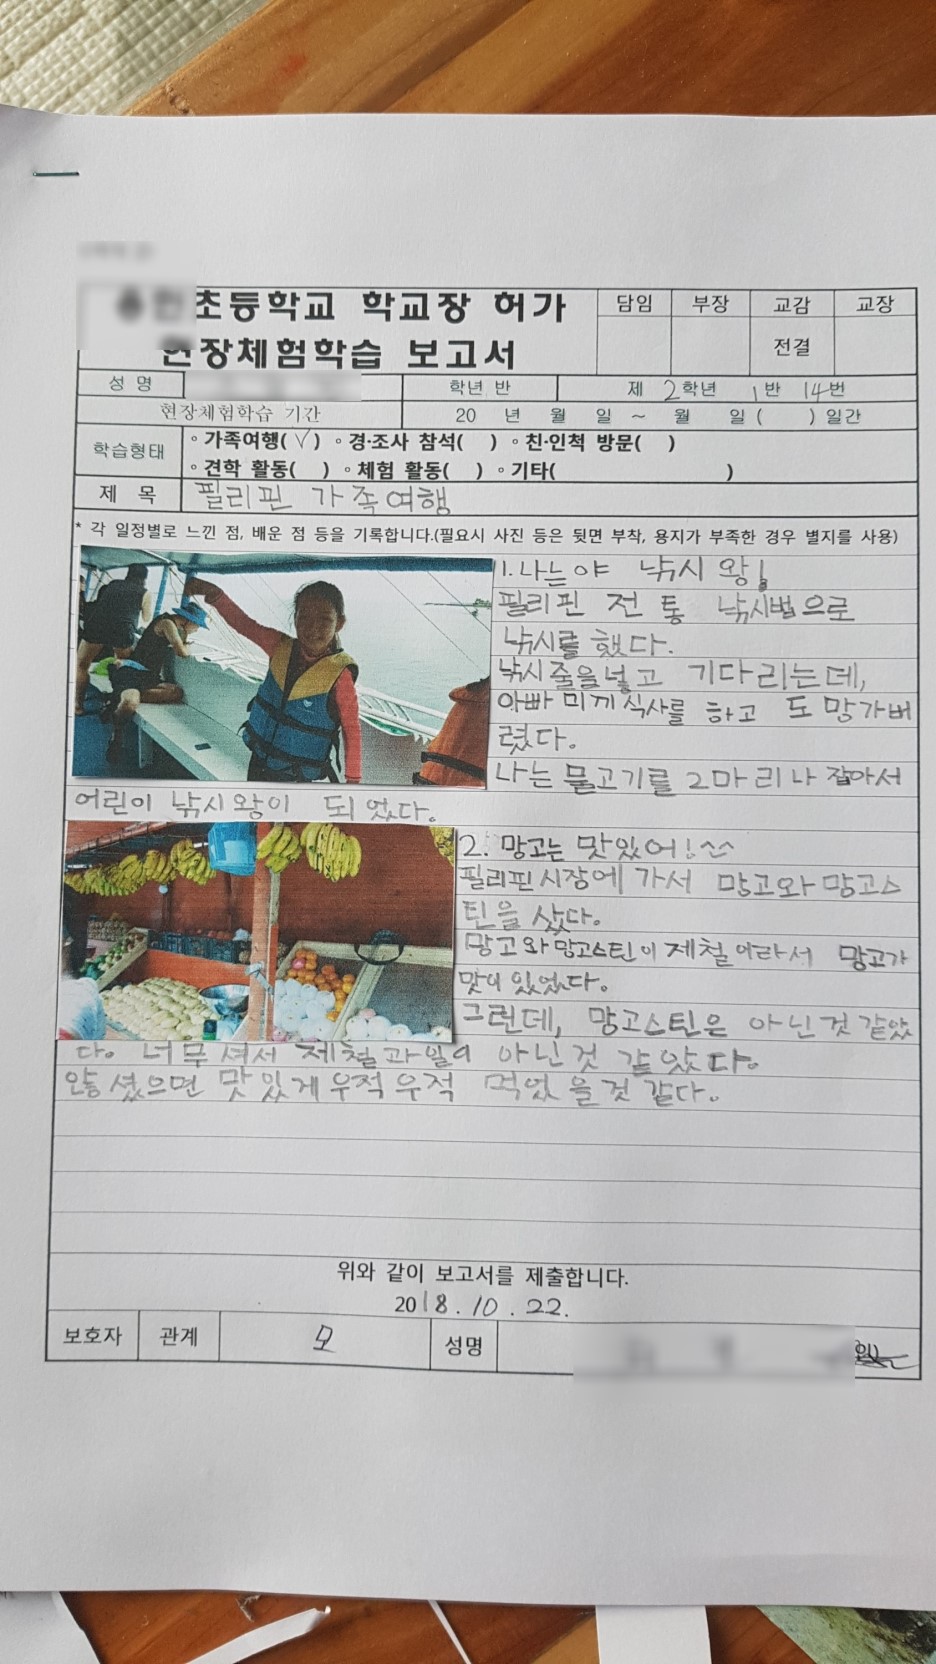 초등학교 학교장 허가
현장체험학습 보고서
담임 부장 교감 교장
전결
성 명 학년 반 제 2학년 1반 14번
현장체험학습 기간 20 년 월 일 ~ 월 일 ( ) 일간
학습형태
◦ 가족여행(√) ◦ 경·조사 참석( ) ◦ 친·인척 방문( )
◦ 견학 활동( ) ◦ 체험 활동( ) ◦ 기타( )
제 목 필리핀 가족여행
* 각 일정별로 느낀 점, 배운 점 등을 기록합니다.(필요시 사진 등은 뒷면 부착, 용지가 부족한 경우 별지를 사용)
1. 나는야 낚시 왕!
필리핀 전통 낚시법으로
낚시를 했다.
낚시줄을넣고 기다리는데,
아빠 미끼 식사를 하고 도망가버
렸다.
나는 물고기를 2마리나 잡아서
어린이 낚시왕이 되었다.
2. 망고는 맛있어!^^
필리핀시장에 가서 망고와 망고스
틴을 샀다.
망고와망고스틴이 제철이라서 망고가
맛이 있었다.
그런데, 망고스틴은 아닌것 같았
다. 너무 셔서 제철과일이 아닌것 같았다.
않셨으면 맛있게우적우적 먹었을것 같다.
위와 같이 보고서를 제출합니다.
2018.10.22.
보호자 관계 모 성명